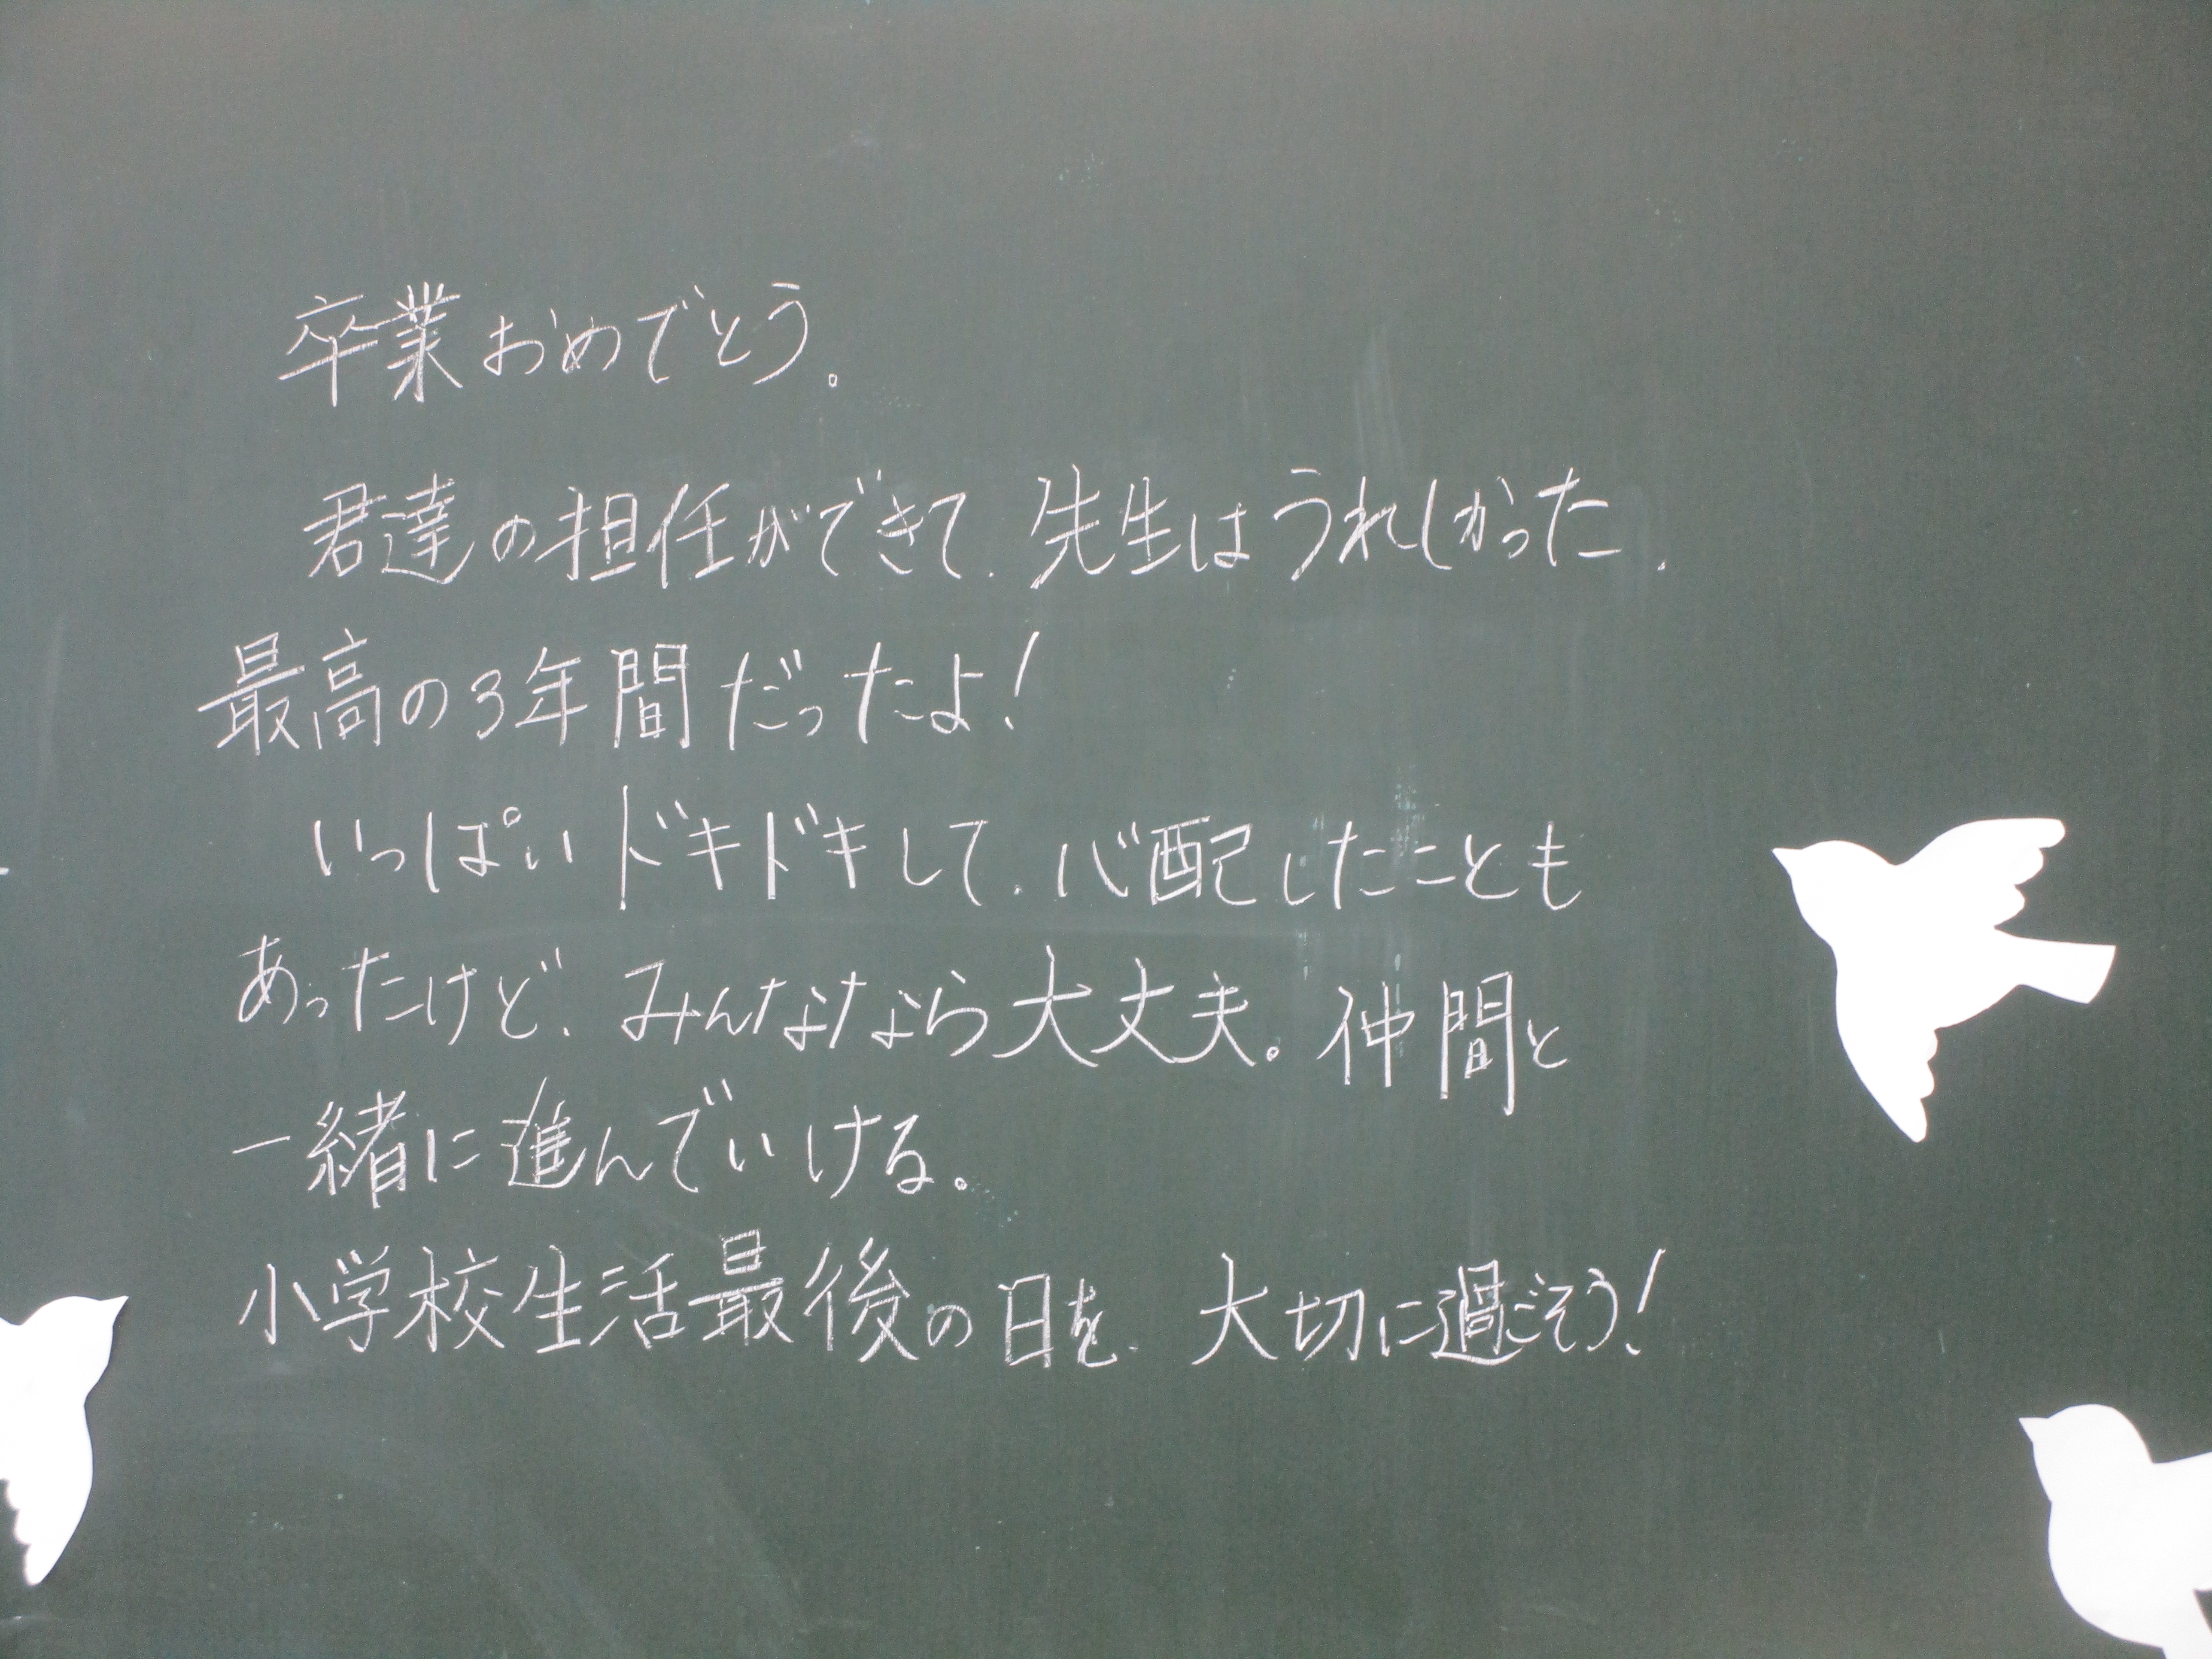 卒業おめでとう。
君達の担任ができて、先生はうれしかった。
最高の3年間だったよ!
いっぱいドキドキして、心配したことも
あったけど、みんななら大丈夫。仲間と
一緒に進んでいける。
小学校生活最後の日を、大切に過ごそう!